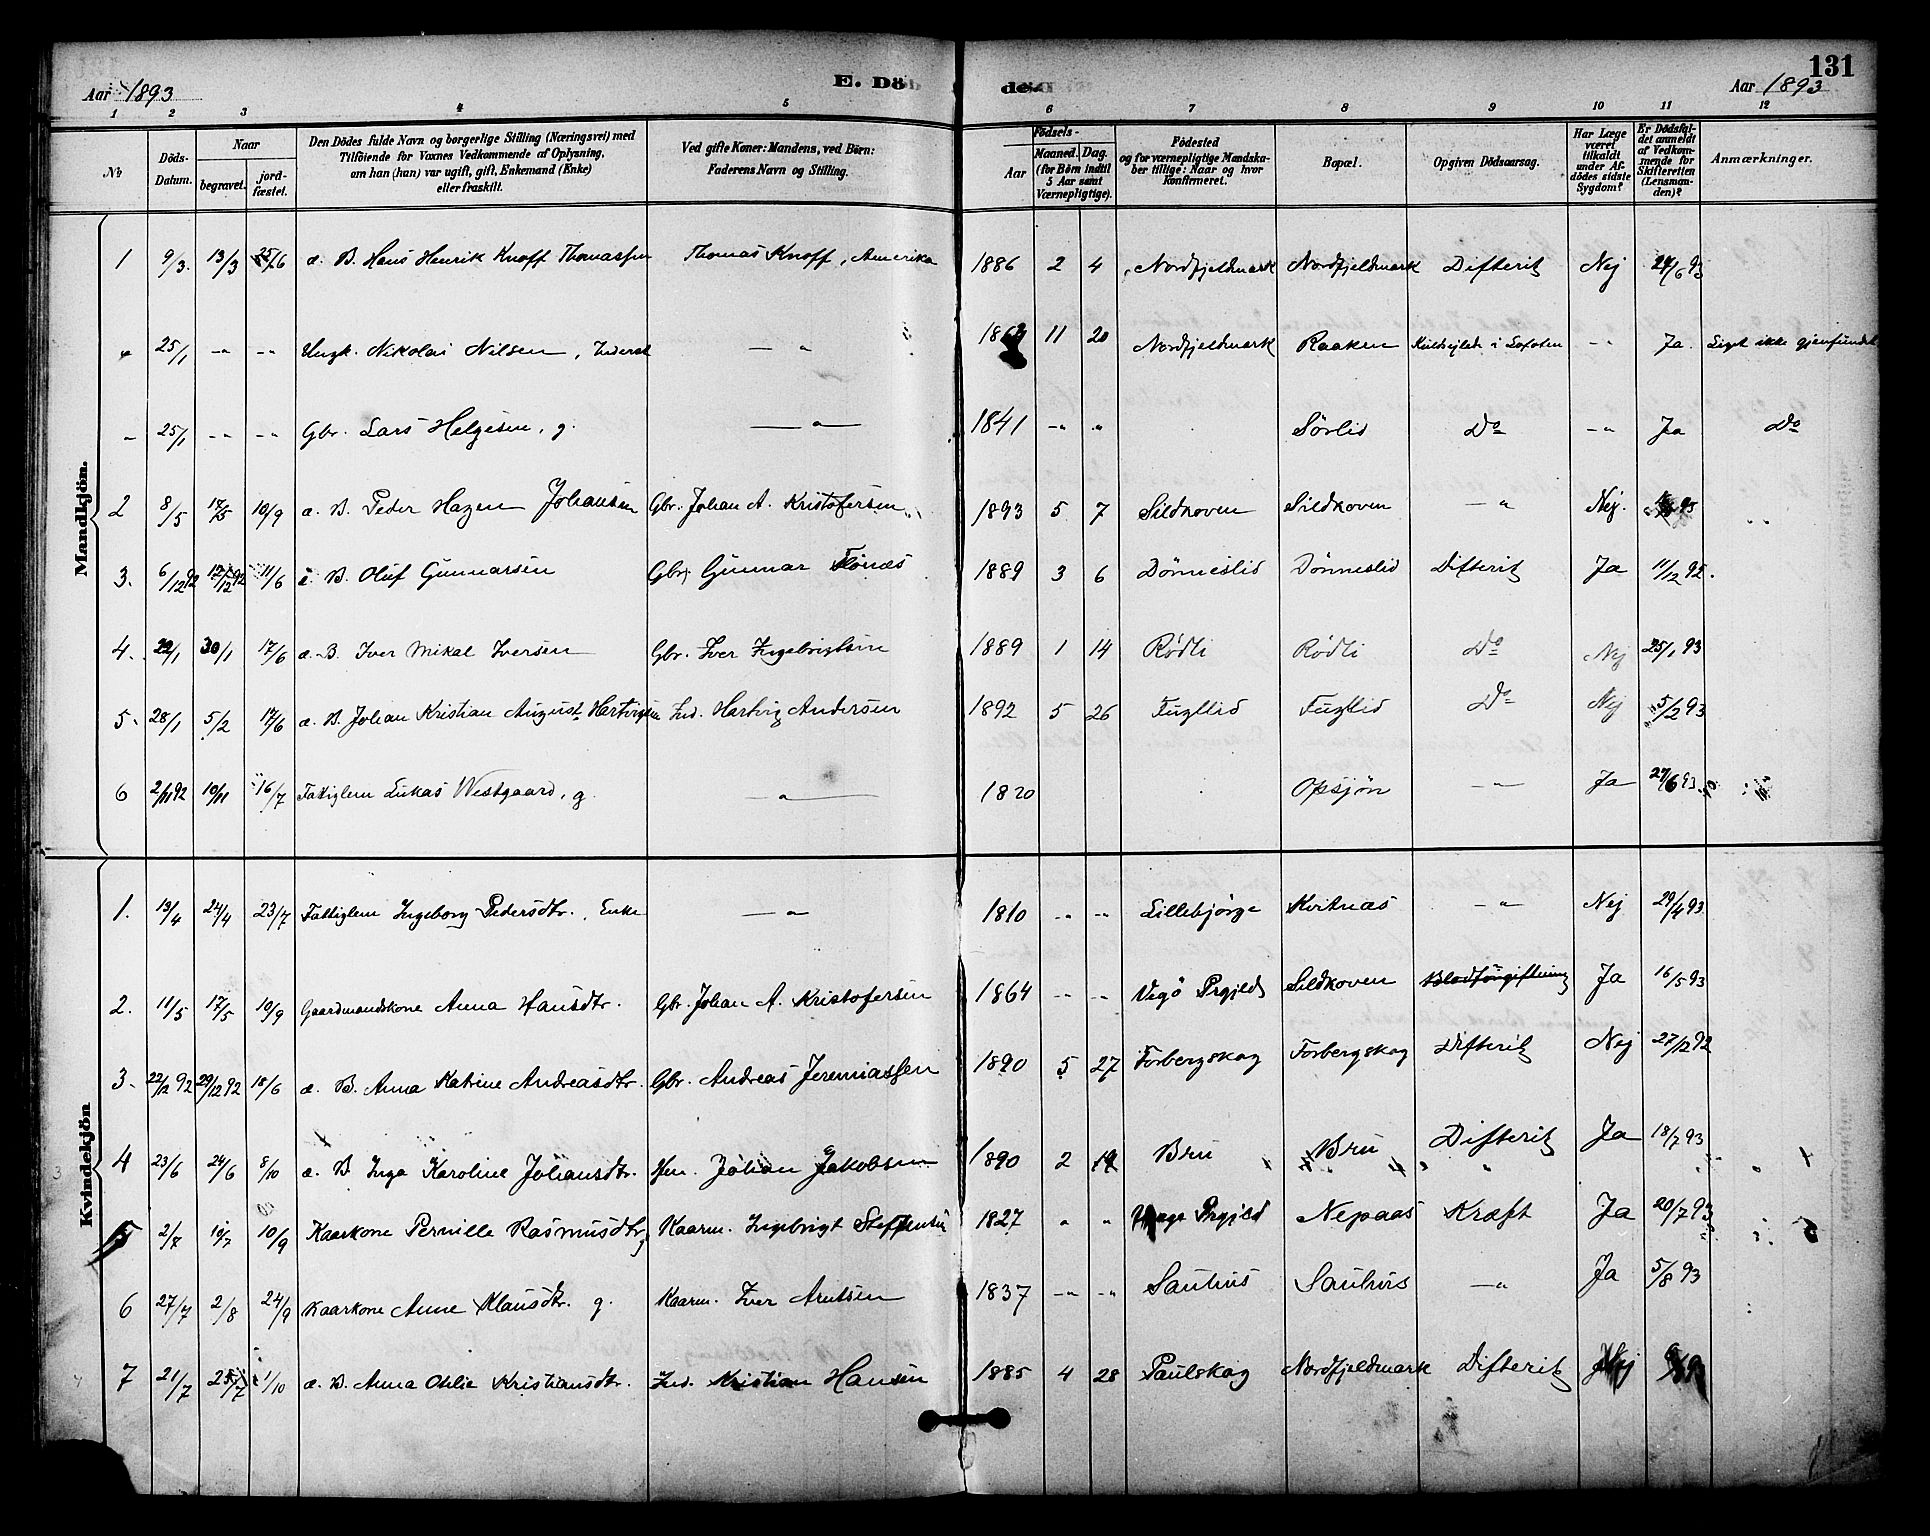 131
Aar 1893
E. Döde.
Aar 1893
1 2 3 4 5 6 7 8 9 10 11 12
No
Döds-Datum.
Naar
begravet.
jord-fæstet.
Den Dödes fulde Navn og borgerlige Stilling (Næringsvei) med
Tilföiende for Voxnes Vedkommende af Oplysning,
om han (hun) var ugift, gift, Enkemand (Enke)
eller fraskilt.
Ved gifte Koner: Mandens, ved Börn:
Faderens Navn og Stilling.
Födsels-
Aar
Maaned. Dag.
(for Börn indtil
5 Aar samt
Værnepligtige).
Födested
og for værnepligtige Mandska-
ber tillige: Naar og hvor
Konfirmeret.
Bopæl.
Opgiven Dödsaarsag.
Har Læge
været
tilkaldt
under Af-
dödes sidste
Sygdom?
Er Dödsfal-
det anmeldt
af Vedkom-
mende for
Skifteretten
(Lensman-
den)?
Anmærkninger.
Mandkjön.
1 9/3. 13/3 25/6 æ. B. Hans Henrik Knoff Thomassen Thomas Knoff, Amerika 1886 2 4 Nordfjeldmark Nordfjeldmark Difterit Nej 24/6 93
" 25/1 -"- -"- Ungk. Nikolai Nilsen, Inderst -"- 11 20 Nordfjeldmark Raaken Kuldsejlede i Lofoten -"- Ja. Liget ikke gjenfundet
" 25/1 -"- -"- Gbr. Lars Helgesen, g. -"- 1841 -"- " Sörlid Do -"- Ja Do
2 8/5 17/5 10/9 æ. B. Peder Hagen Johansen Gbr. Johan A. Kristofersen 1893 5 7 Sildhoven Sildhoven -"- Nej.
3. 6/12 92 12/12 92 11/6 æ. B. Oluf Gunnarsen Gbr. Gunnar Tönæs 1889 3 6 Dönneslid Dönneslid Difterit Ja 11/12 92.
4. 22/1 30/1 17/6 æ. B. Iver Mikal Iversen Gbr. Iver Ingebrigtsen 1889 1 14 Rødli Rødli Do Nej 25/1 93
5. 28/1 5/2 17/6 æ. B. Johan Kristian August Hartvigsen Ind. Hartvig Andersen 1892 5 26 Fugllid Fugllid Do Nej 5/2 93
6 2/11 92 10/11 16/7 Fattiglem Lukas Westgaard, g. -"- 1820 Opsjøn -"- Ja 27/6 93
Kvindekjön
1. 19/4 24/4 23/7 Fattiglem Ingeborg Pedersdtr., Enke -"- 1810 -"- -"- Lillebjörge Kvitnæs -"- Nej 29/4 93
2. 11/5 17/5 10/9 Gaardmandskone Anna Hansdtr. Gbr. Johan A. Kristofersen 1864 -"- -"- Vegö Prgjeld Sildhoven Blodforgiftning Ja 16/5 93
3. 22/12 92 29/12 92 18/6 æ. B. Anna Katrine Andreasdtr. Gbr. Andreas Jeremiassen 1890 5 27 Torbergskog Torbergskog Difterit Nej 27/12 92
4 23/6 24/6 8/10 æ. B Inga Karoline Johansdtr. Johan Jakobsen 1890 2 19 Bru Bru Difterit Ja 18/7 93
5 2/7 10/7 10/9 Kaarkone Pernille Rasmusdtr Kaarm. Ingebrigt Steffensen 1827 " " Prgjeld Nepaas Kræft Ja 20/7 93
6 27/7 2/8 24/9 Kaarkone Anne Klausdtr. g. Kaarm. Iver Arntsen 1837 -"- -"- Sauhus Sauhus -"- Ja 5/8 93
7 21/7 25/7 1/10 æ. B. Anna Othlie Kristiansdtr. Ind. Kristian Hansen 1885 4 28 Paulskog Nordfjeldmark Difterit Nej